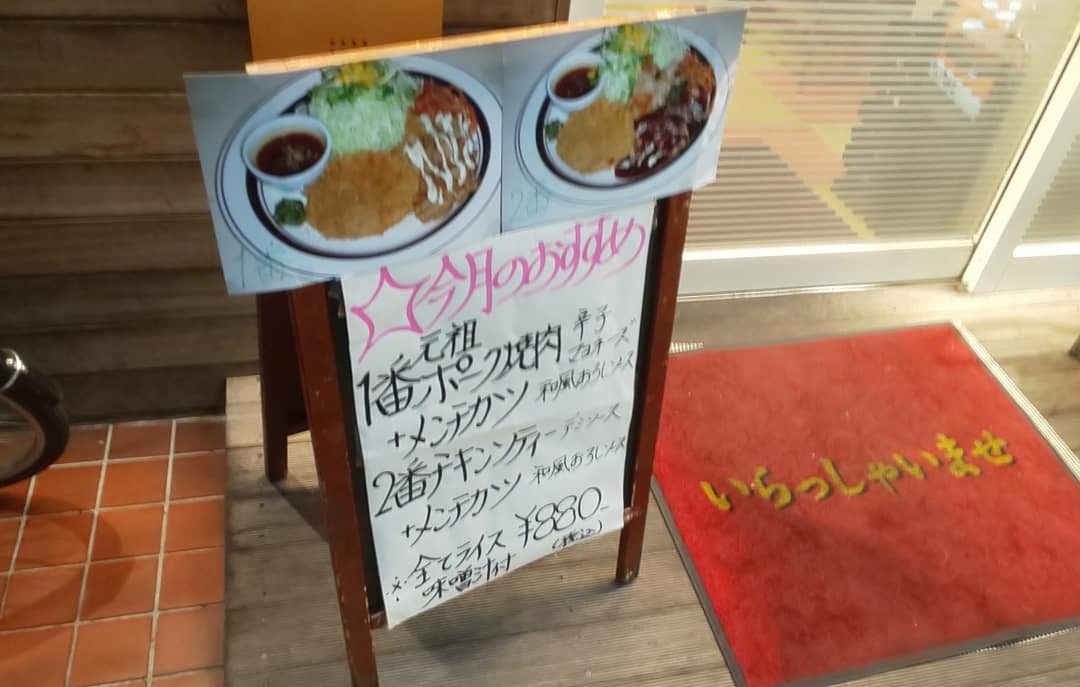 1番
2番
☆今月のおすすめ
元祖
1番ポーク焼肉 辛子マヨネーズ
+メンチカツ 和風おろしソース
2番チキンソティー デミソース
+メンチカツ 和風おろしソース
¥880-
(税込)
※全てライス
味噌汁付
いらっしゃいませ